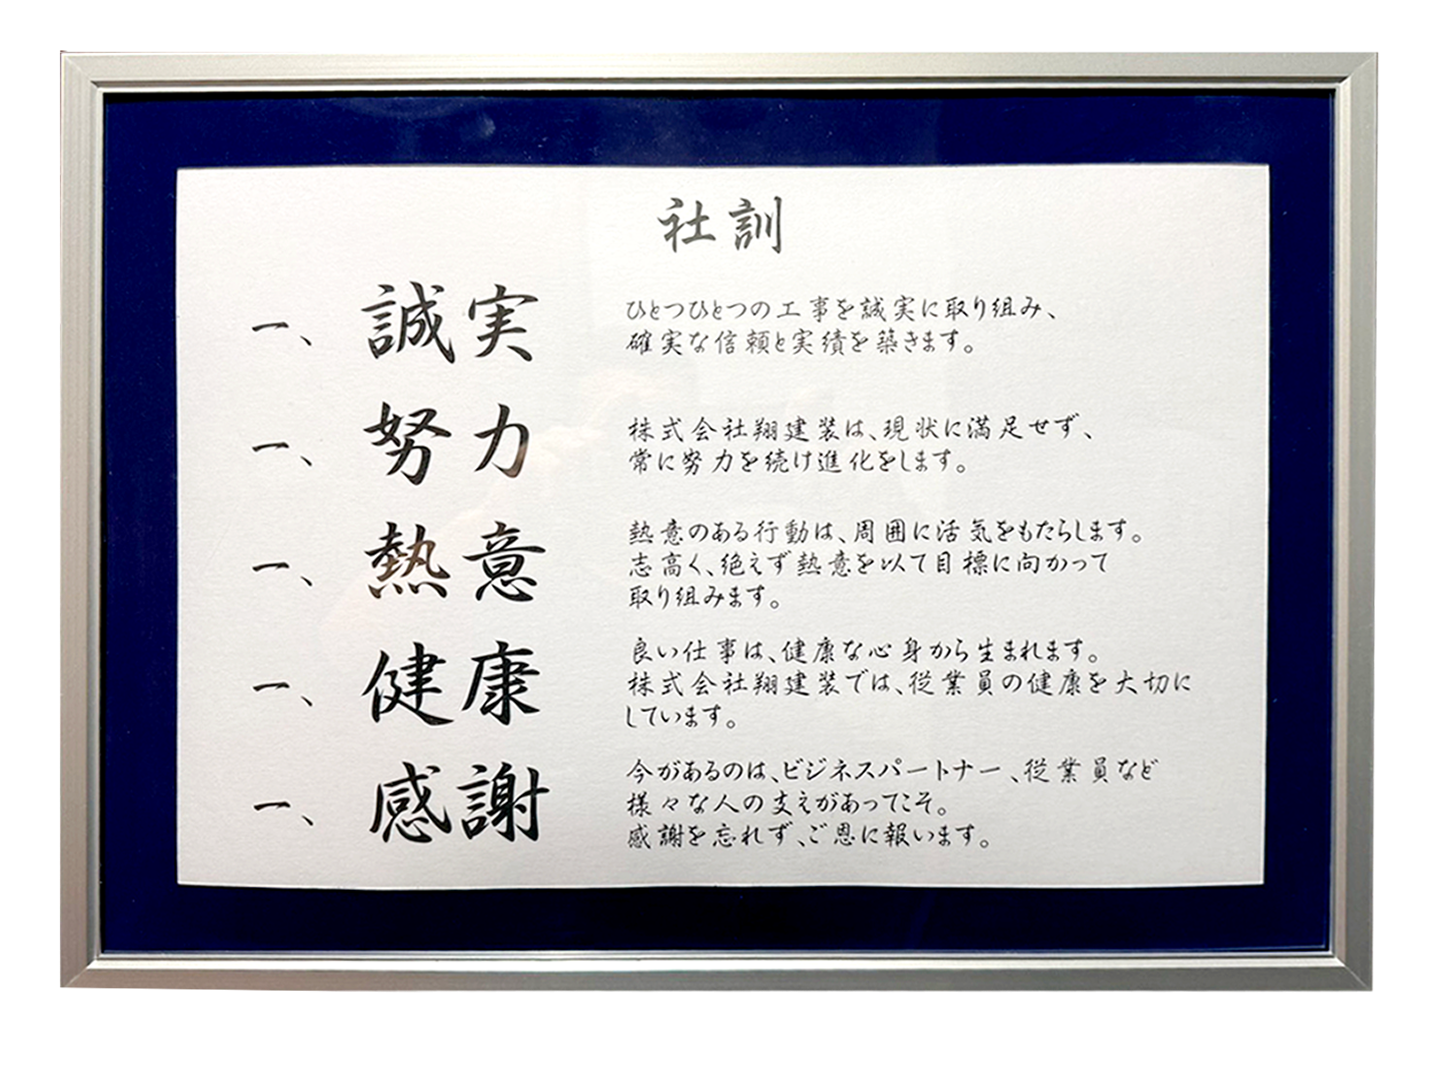 社訓
一、 誠実
ひとつひとつの工事を誠実に取り組み、
確実な信頼と実績を築きます。
一、 努力
株式会社翔建装は、現状に満足せず、
常に努力を続け進化をします。
一、 熱意
熱意のある行動は、周囲に活気をもたらします。
志高く、絶えず熱意を以て目標に向かって
取り組みます。
一、 健康
良い仕事は、健康な心身から生まれます。
株式会社翔建装では、従業員の健康を大切に
しています。
一、 感謝
今があるのは、ビジネスパートナー、従業員など
様々な人の支えがあってこそ。
感謝を忘れず、ご恩に報います。